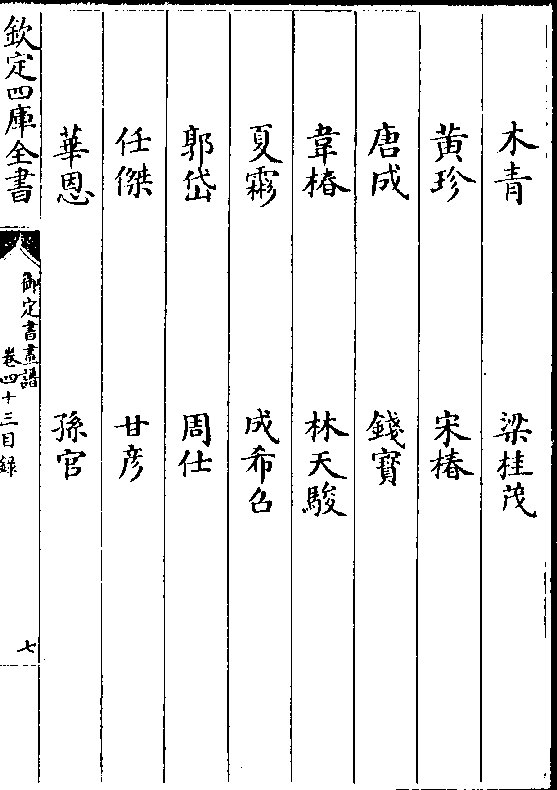 木青　梁桂茂
黄珍　宋椿
唐成　錢寳
韋椿　林天駿
夏霖　成希召
郭岱　周仕
任傑　甘彦
華恩　孫官
欽定四庫全書
御定書畫譜
卷四十三目録
七